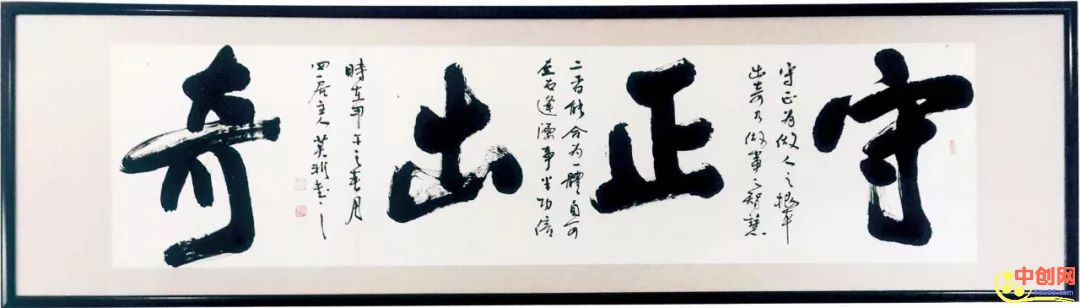 守
守正为做人之根本
出奇乃做事之智慧
正
二者能合为一體自可
左右逢源事半功倍
出
時在甲午之春月
居主人
奇
中创网